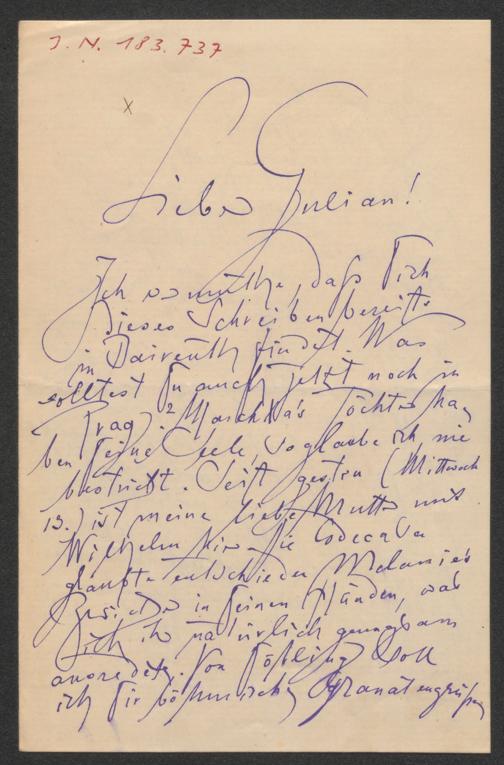 J. N. 183.737
x
Lieber Julian!
Ich vermuthe, daß Dich
dieses Schreiben bereits
in Baireuth findet. Was
solltest Du auch jetzt noch in
Prag?
Töchter ha-
ben Deine Seele, so glaube ich, nie
bestrickt. Seit gestern (Mittwoch
13.) ist meine liebe Mutter mit
Wilhelm hier. Die
glaubte entschieden Melanie's
in Deinen Händen, was
ich ihr natürlich genugsam
ausredete. Von soll
ich Dir böhmische Granatengrüße